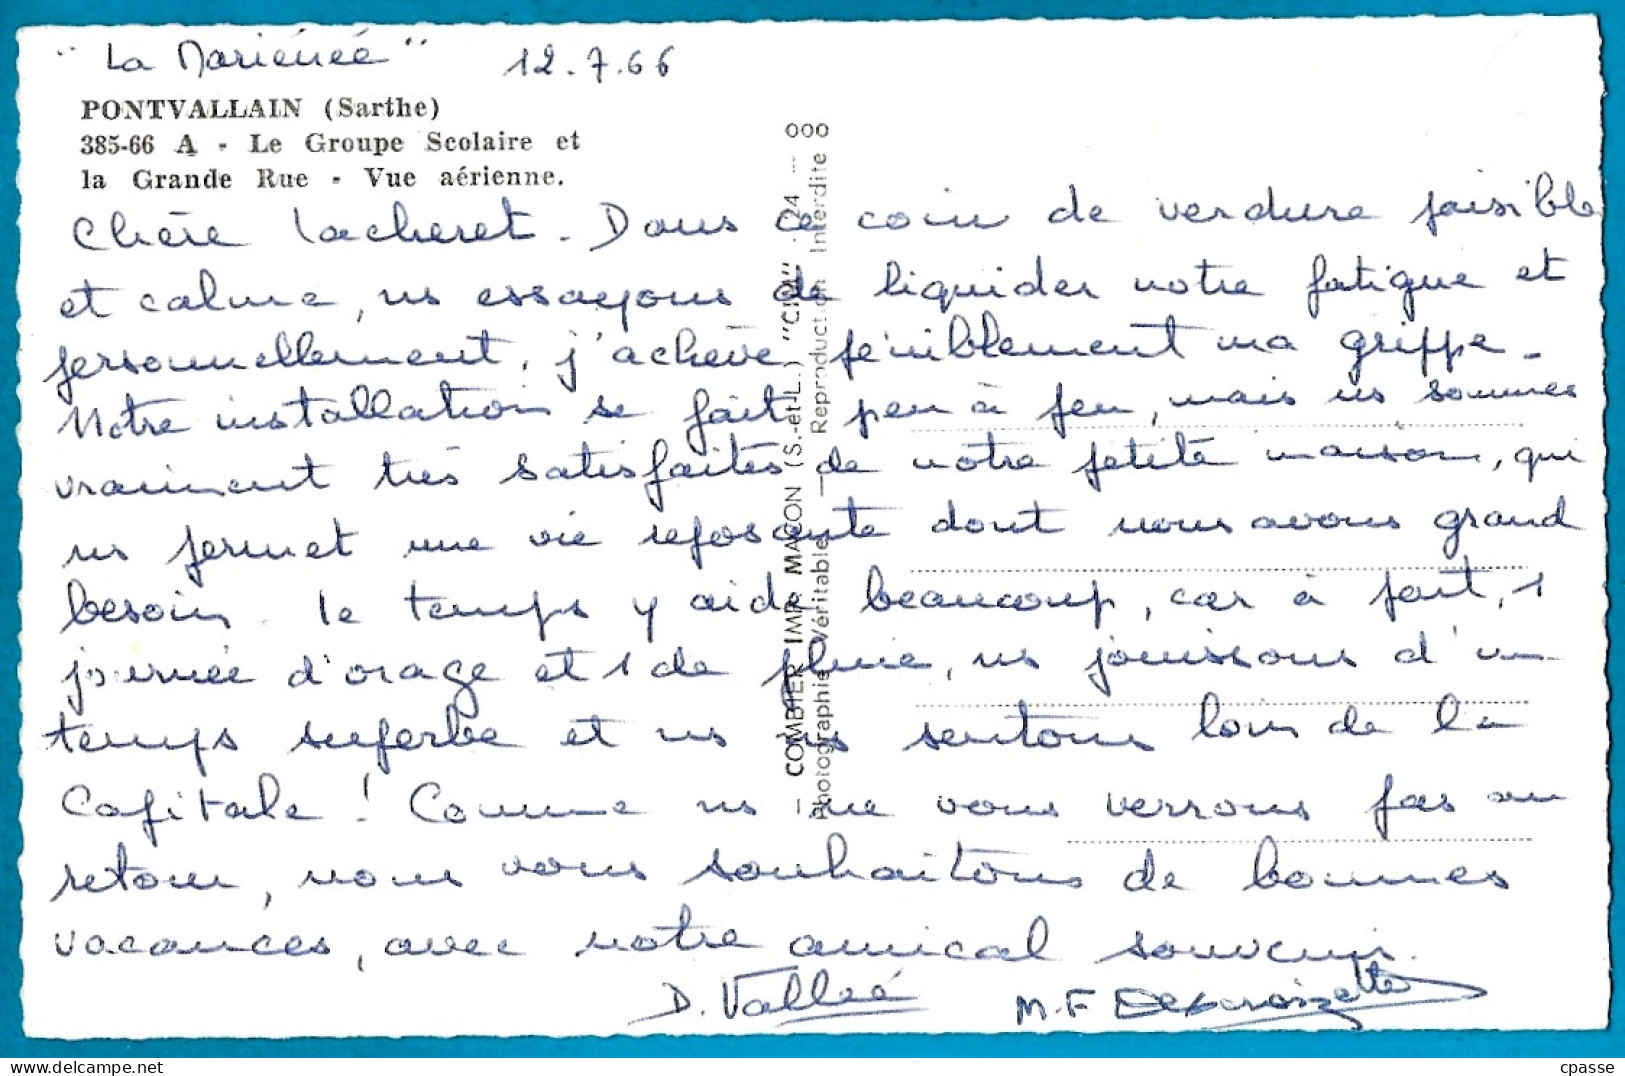 "La Mariénée" 12.7.66
PONTVALLAIN (Sarthe)
385-66 A - Le Groupe Scolaire et
la Grande Rue - Vue aérienne.
Chère Lacheret. Dans ce coin de verdure paisible
et calme, ns essayons de liquider notre fatigue et
personnellement, j'achève péniblement ma grippe.
Notre installation se fait peu à peu, mais ns sommes
vraiment très satisfaites de notre petite maison, qui
ns permet une vie reposante dont nous avons grand
besoin. le temps y aide beaucoup, car à part, 1
journée d'orage et 1 de pluie, ns jouissons d'un
temps superbe et ns ns sentons loin de la
Capitale ! Comme ns ne vous verrons pas au
retour, nous vous souhaitons de bonnes
vacances, avec notre amical souvenir.
D. Vallée M.F
COMBIER IMP. MACON (S.-et-L.) "CIM" 24
Photographie Véritable — Reproduction Interdite
000
cpasse